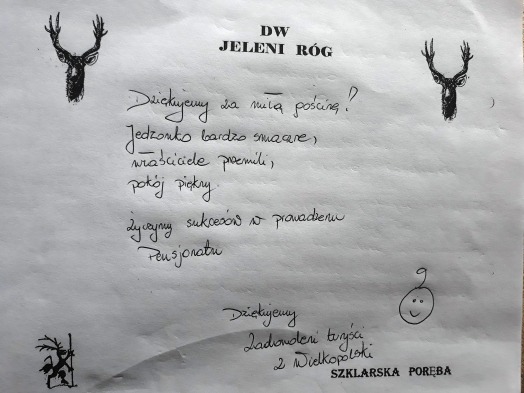 DW
JELENI RÓG
Dziękujemy za miłą gościnę!
Jedzonko bardzo smaczne,
właściciele przemili,
pokój piękny.
Życzymy sukcesów w prowadzeniu
Pensjonatu
Dziękujemy
Zadowoleni turyści
z Wielkopolski
SZKLARSKA PORĘBA